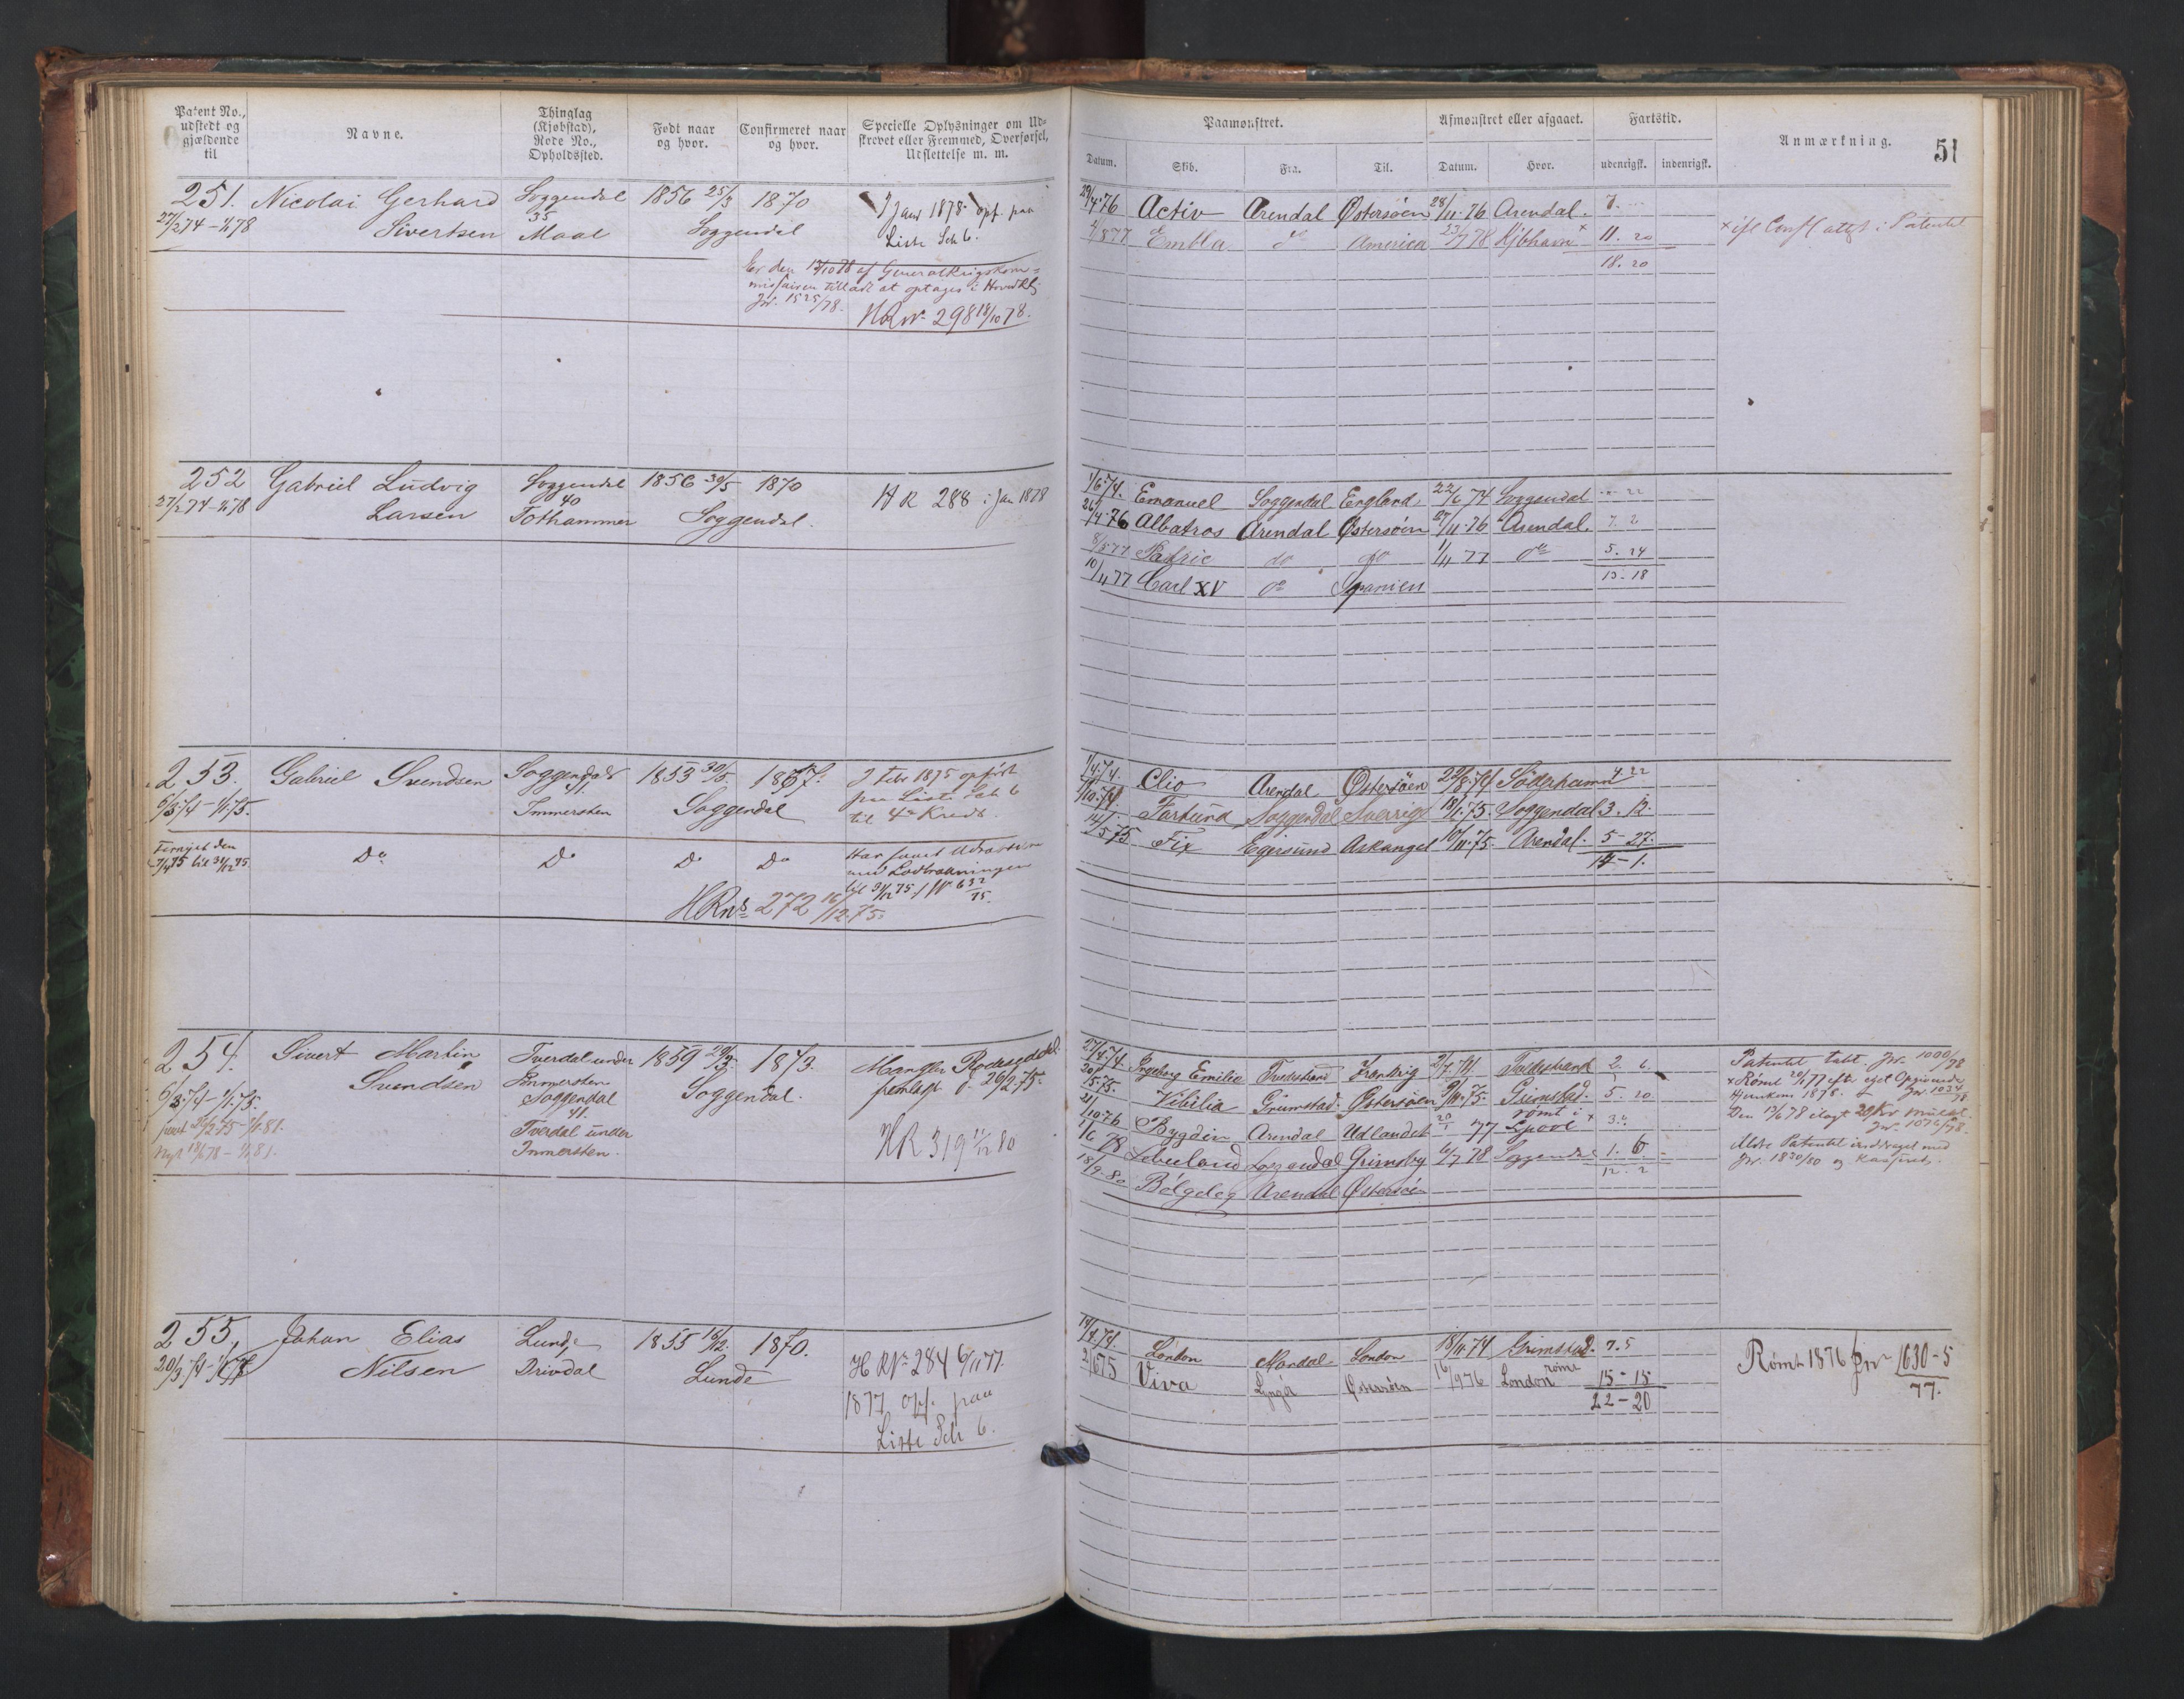 Patent No., udstedt og gjældende til
Navne.
Thinglag (Kjøbstad), Rode No., Opholdssted.
Født naar og hvor.
Confirmeret naar og hvor.
Specielle Oplysninger om Udskrevet eller Fremmed, Overførsel, Udslettelse m. m.
Paamønstret.
Afmønstret eller afgaaet.
Fartstid.
Anmærkning.
51
Datum. Skib. Fra. Til. Datum. Hvor. udenrigsk. indenrigsk.
251. Nicolai Gerhard Soggendal 1856 25/3 1870 I Janr 1878 opf. paa
27/2 74 - 1/1 78 Sivertsen 35 Maal Soggendal Liste Sch 6.
Er den 12/10 78 af Generalkrigskom-
missairen tilladt at optages i Hovedr
Jr. 1525/78. HR No 298 18/10 78.
29/4 76 Activ Arendal Østersøen 28/11 76 Arendal. 7. -
4/8 77 Embla do America 23/7 78 Kjbhavn x 11. 20
18. 20
252 Gabriel Ludvig Soggendal 1856 30/5 1870 HR 288 i Jan 1878
27/2 74 - 1/1 78 Larsen 40 Tothammer Soggendal.
1/6 74. Emanuel Soggendal England 22/6 74 Soggendal - 22
26/4 76 Albatros Arendal Østersøen 27/11 76 Arendal. 7. 2
8/5 77 Patric do do 1/11 77 do 5. 24
13 - 18
10/11 77 Carl XV do Spanien
253. Gabriel Svendsen Soggendal 1853 30/5. 1867. I Febr 1875 opført
6/3 74 - 1/1 75. 41. Immersten Soggendal paa Liste Sch 6
til 4de Kreds.
Fornyet den
7/4 75 til 31/12 75. Do Do Do Do Har faaet Udsættelse
med Lodtrækningen
til 31/12 75 / No 632/75.
HR No 272 16/12 75.
1/4 74. Clio Arendal Østersøen 22/8 74 Söderhamn 4. 22
1/10 74. Fortuna Soggendal Sverige 18/1 75. Soggendal 3. 12.
14/5 75 Fix Egersund Arkangel 10/11 75. Arendal. 5 - 27.
14 - 1.
254. Sivert Martin Tverdal under 1859 29/3. 1873. Mangler
6/3 74 - 1/1 75. Svendsen Immersten Soggendal. fremlagt d. 26/2 75.
Soggendal
41.
Tverdal under
Immersten.
HR 319 11/12 80
27/4 74. Ingeborg Emilie Tvedestrand Frankrig 2/7 74. Tvedestrand 2. 6.
20/5 75. Vibilia Grimstad. Østersøen 9/11 75. Grimstad. 5. 20
21/10 76 Bygdin Arendal Udlandet 20/1 77 rømt i Lpool x 3.
1/6 78 Soggendal Grimsby 6/7 78 Soggendal 1. 6
12. 2
18/9 80 Bølgeleg Arendal Østersøen
Patentet tabt. Jr. 1000/78
x Rømt 20/1 77 efter eget Opgivende
Hjemkom 1878. Jr. 1034/78
Den 13/6 78 ilagt 20 Kr Mulct.
Jr. 1076/78.
Ældre Patentet inddraget med
Jr. 1830/80 og kasseret.
255. Johan Elias Lunde 1855 16/12. 1870.
20/3 74 - 1/1 78 Nilsen Drivdal Lunde H R No 284 6/11 77.
1877 opf. paa
Liste Sch 6.
14/4 74. London Mandal London 18/11 74 Grimstad. 7. 5
2/6 75 Viva Lyngör Østersøen 16/9 76 London rømt 15 - 15
22 - 20
Rømt 1876 Jnr 1630-5/77.